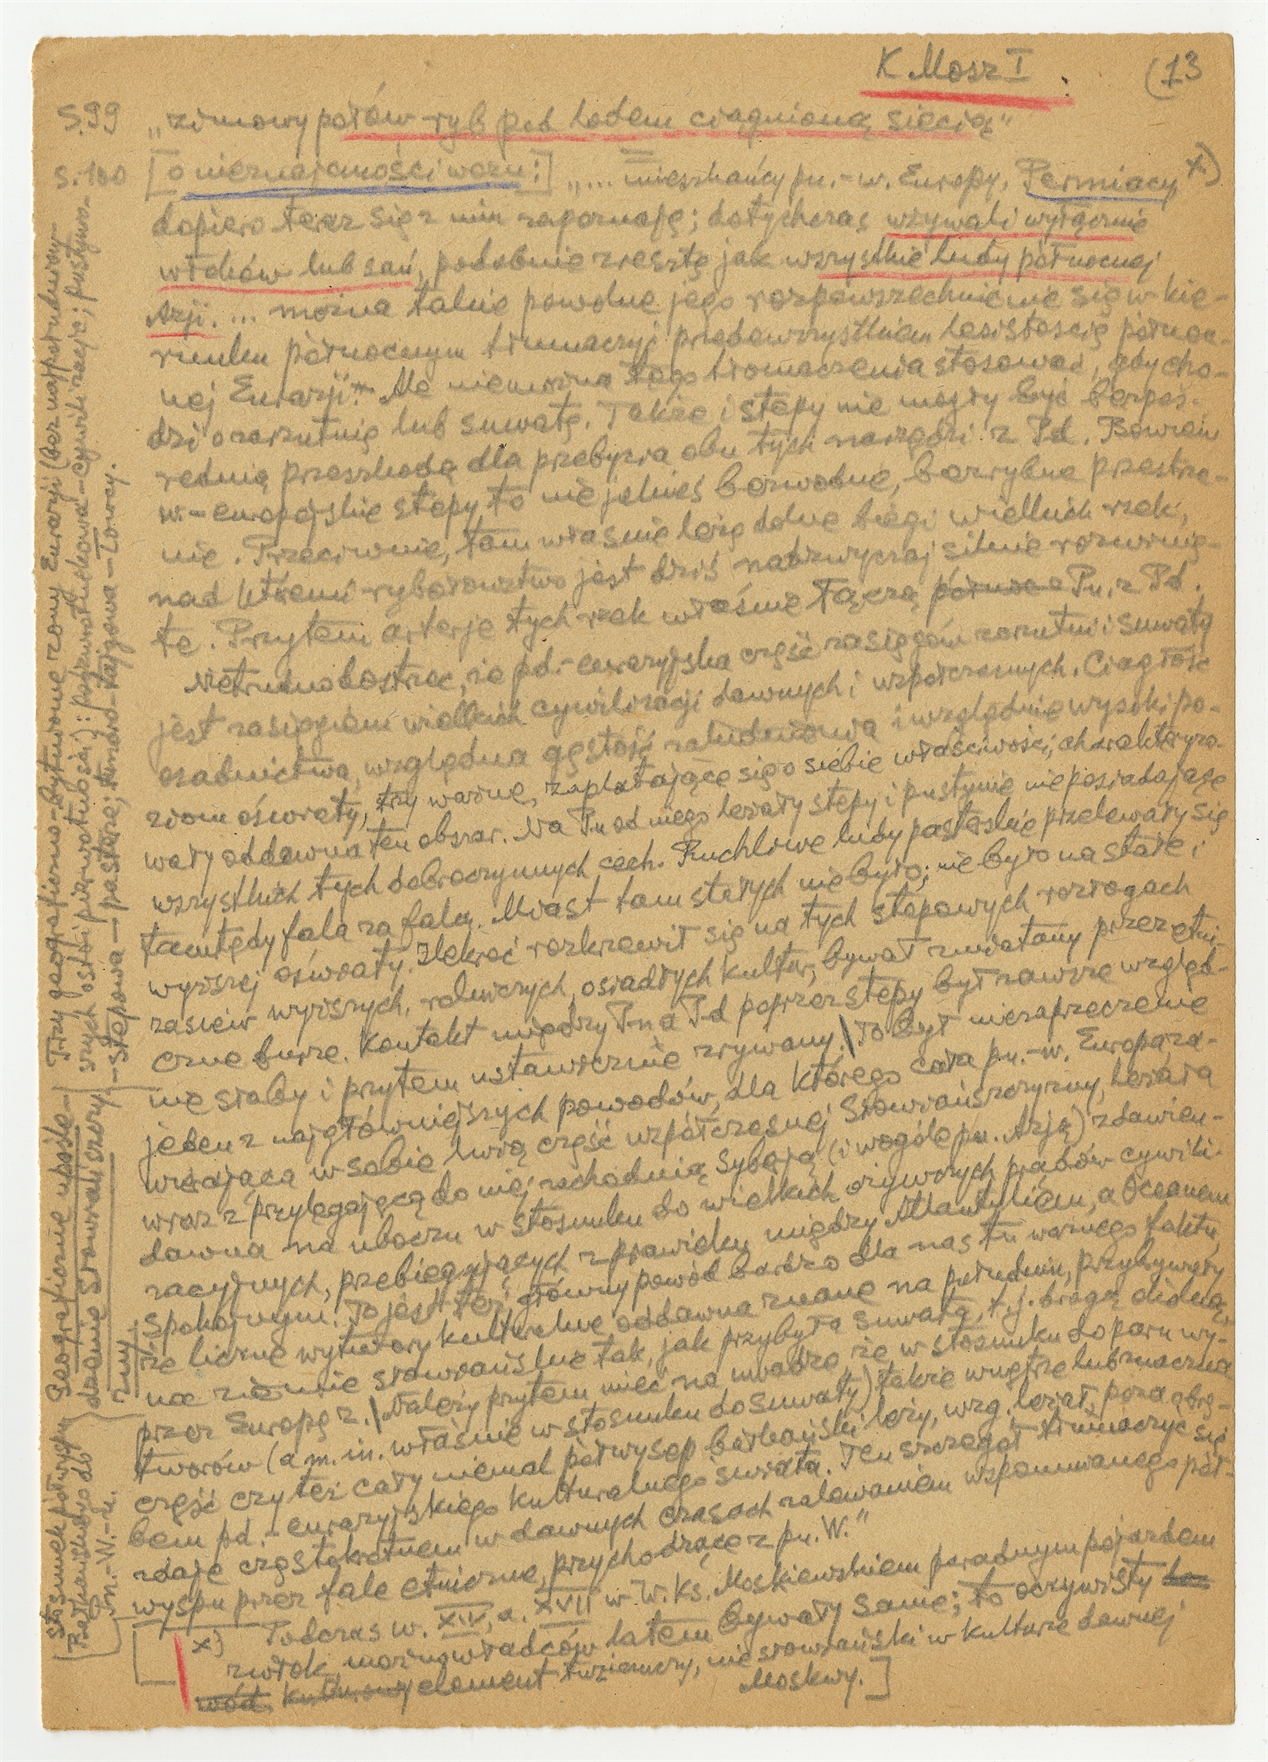 K Mosz I
(13
S. 99 „zimowy połów ryb pod lodem ciągnioną siecią"
s. 100 [o nieznajomości wozu:] „... mieszkańcy pn.-w. Europy, Permiacy x)
dopiero teraz się z nim zapoznają; dotychczas używali wyłącznie
włóków lub sań, podobnie zresztą jak wszystkie ludy północnej
Azji. ... można takie powolne jego rozpowszechnienie się w kie-
runku północnym tłumaczyć przedewszystkiem lesistością północ-
nej Eurazji. Ale niemożna tego tłomaczenia stosować, gdy cho-
dzi o zarzutnię lub suwatę. Także i stepy nie mogły być bezpoś-
rednią przeszkodą dla przebycia obu tych narzędzi z Pd. Bowiem
w.-europejskie stepy to nie jakieś bezwodne, bezrybne przestrze-
nie. Przeciwnie, tam właśnie leżą dolne biegi wielkich rzek,
nad któremi rybołowstwo jest dziś nadzwyczaj silnie rozwinię-
te. Przytem arterje tych rzek właśnie łączą północ Pn. z Pd.
Nietrudno dostrzec, że pd.-eurazyjska część zasięgów zarzutni i suwaty
jest zasięgiem wielkich cywilizacji dawnych i współczesnych. Ciągłość
osadnictwa, względna gęstość zaludnienia i względnie wysoki po-
ziom oświaty, trzy ważne, zaplatające się o siebie właściwości, charakteryzo-
wały oddawna ten obszar. Na Pn od niego leżały stepy i pustynie nieposiadające
wszystkich tych dobroczynnych cech. Ruchliwe ludy pasterskie przelewały się
tamtędy fala za falą. Miast tam stałych nie było; nie było na stałe i
wyższej oświaty. Ilekroć rozkrzewił się na tych stepowych rozłogach
zasiew wyższych, rolniczych, osiadłych kultur, bywał zmiatany przez etni-
czne burze. Kontakt między Pn a Pd poprzez stepy był zawsze względ-
nie słaby i przytem ustawicznie zrywany. | To był niezaprzeczenie
jeden z najgłówniejszych powodów, dla którego cała pn.-w. Europa za-
wierająca w sobie lwią część współczesnej Słowiańszczyzny, leżała
wraz z przylegającą do niej zachodnią Syberją (i wogóle pn. Azją) zdawien-
dawna na uboczu w stosunku do wielkich ożywczych prądów cywili-
zacyjnych, przebiegających z prawieku między Atlantykiem, a Oceanem
Spokojnym. To jest też główny powód bardzo dla nas tu ważnego faktu,
że liczne wytwory kulturalne oddawna znane na południu, przybywały
na ziemie słowiańskie tak, jak przybyła suwata, t.j. drogą okólną,
przez Europę z. | Należy przytem mieć na uwadze że w stosunku do paru wy-
tworów (a m. in. właśnie w stosunku do suwaty) także węższa lub znaczna
część czy też cały niemal półwysep bałkański leży, wzg. leżał, poza obrę-
bem pd.-eurazyjskiego kulturalnego świata. Ten szczegół tłumaczyć się
zdaje częstokrotnem w dawnych czasach zalewaniem wspomnianego pół-
wyspu przez fale etniczne, przychodzące z pn. W."
[x) Podczas w. XIV, a. XVII w W. Ks. Moskiewskiem paradnym pojazdem
zwłok możnowładców latem bywały sanie; to oczywisty
kulturowy element tuziemczy, nie słowiański w kulturze dawnej
Moskwy.]
Trzy geograficzno-bytowe zony Eurazji (bez najpołudniow-
szych ostoi pierwotności): południowa – cywilizacje; pustynno-
-stepowa – pasterze; tundro-tajgowa – łowcy.
Geograficzne upośle-
dzenie Słowiańszczy-
zny
Stosunek półwyspu
Bałkańskiego do
pn.-W.-u.